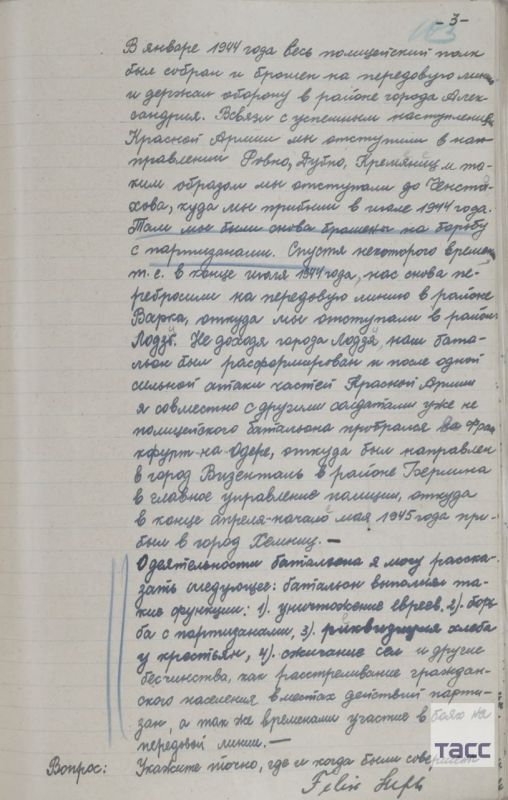 -3-
113
В январе 1944 года весь полицейский полк
был собран и брошен на передовую линию
и держал оборону в районе города Алек-
сандрия. Всвязи с успешным наступлением
Красной Армии мы отступили в нап
правлении Ровно, Дубно, Кремянец и та-
ким образом мы отступали до Ченста-
хова, куда мы прибыли в июле 1944 года.
Там мы были снова брошены на борьбу
с партизанами. Спустя некоторого времени,
т.е. в конце июля 1944 года, нас снова пе-
ребросили на передовую линию в районе
Варка, откуда мы отступали в район
Лодзь. Не доходя города Лодзя, наш бата-
льон был расформирован и после одной
сильной атаки частей Красной Армии
я совместно с другими солдатами уже не
полицейского батальона пробрался во Фран
кфурт-на Одере, откуда был направлен
в город Визенталь в районе Берлина
в главное управление полиции, откуда
в конце апреля-начале мая 1945 года при-
был в город Хемниц. —
О деятельности батальона я могу расска-
зать следующее: батальон выполнял та-
кие функции: 1). уничтожение евреев, 2). борь
ба с партизанами, 3). реквизиция хлеба
у крестьян, 4). сжигание сел и другие
бесчинства, как расстреливание граждан-
ского населения в местах действий парти-
зан, а так же временами участие в боях на
передовой линии. —
Вопрос: Укажите точно, где и когда были
Felix
ТАСС